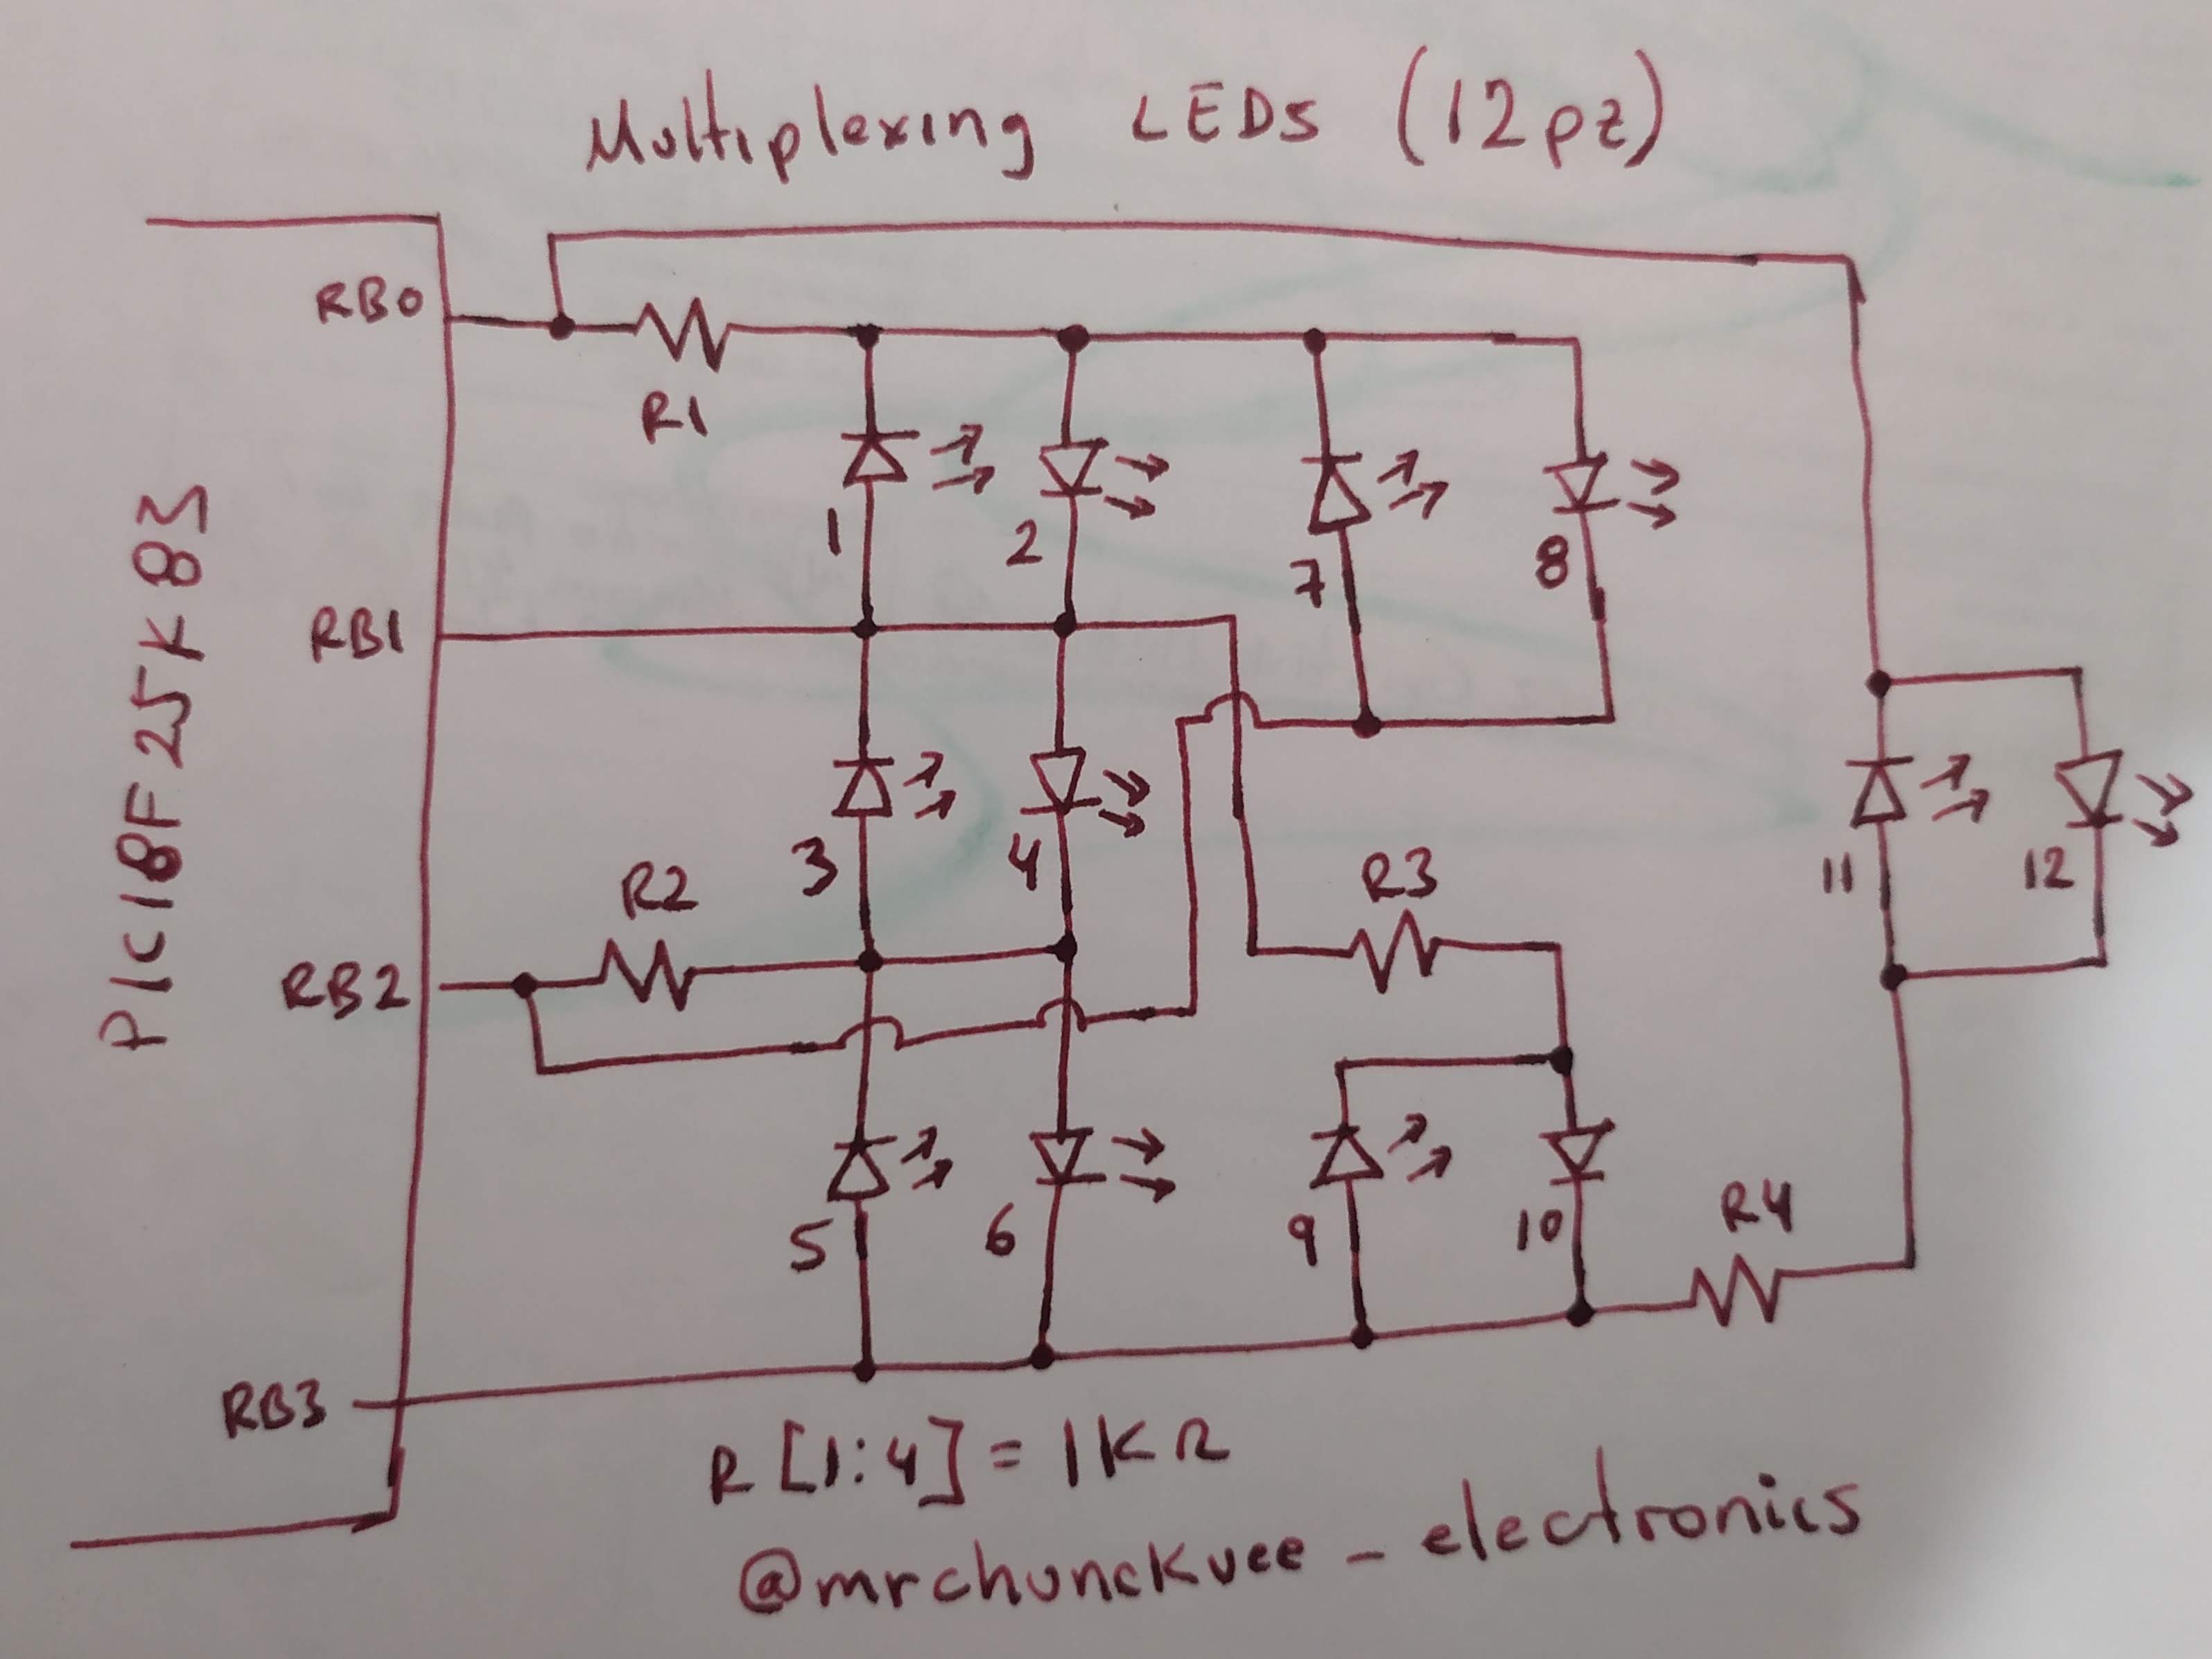 Multiplexing LEDs (12pz)
PIC18F25K83
RB0
R1
1
2
7
8
RB1
3
4
R2
R3
11
12
RB2
5
6
9
10
R4
RB3
R [1:4] = 1KΩ
@mrchunckuee_electronics